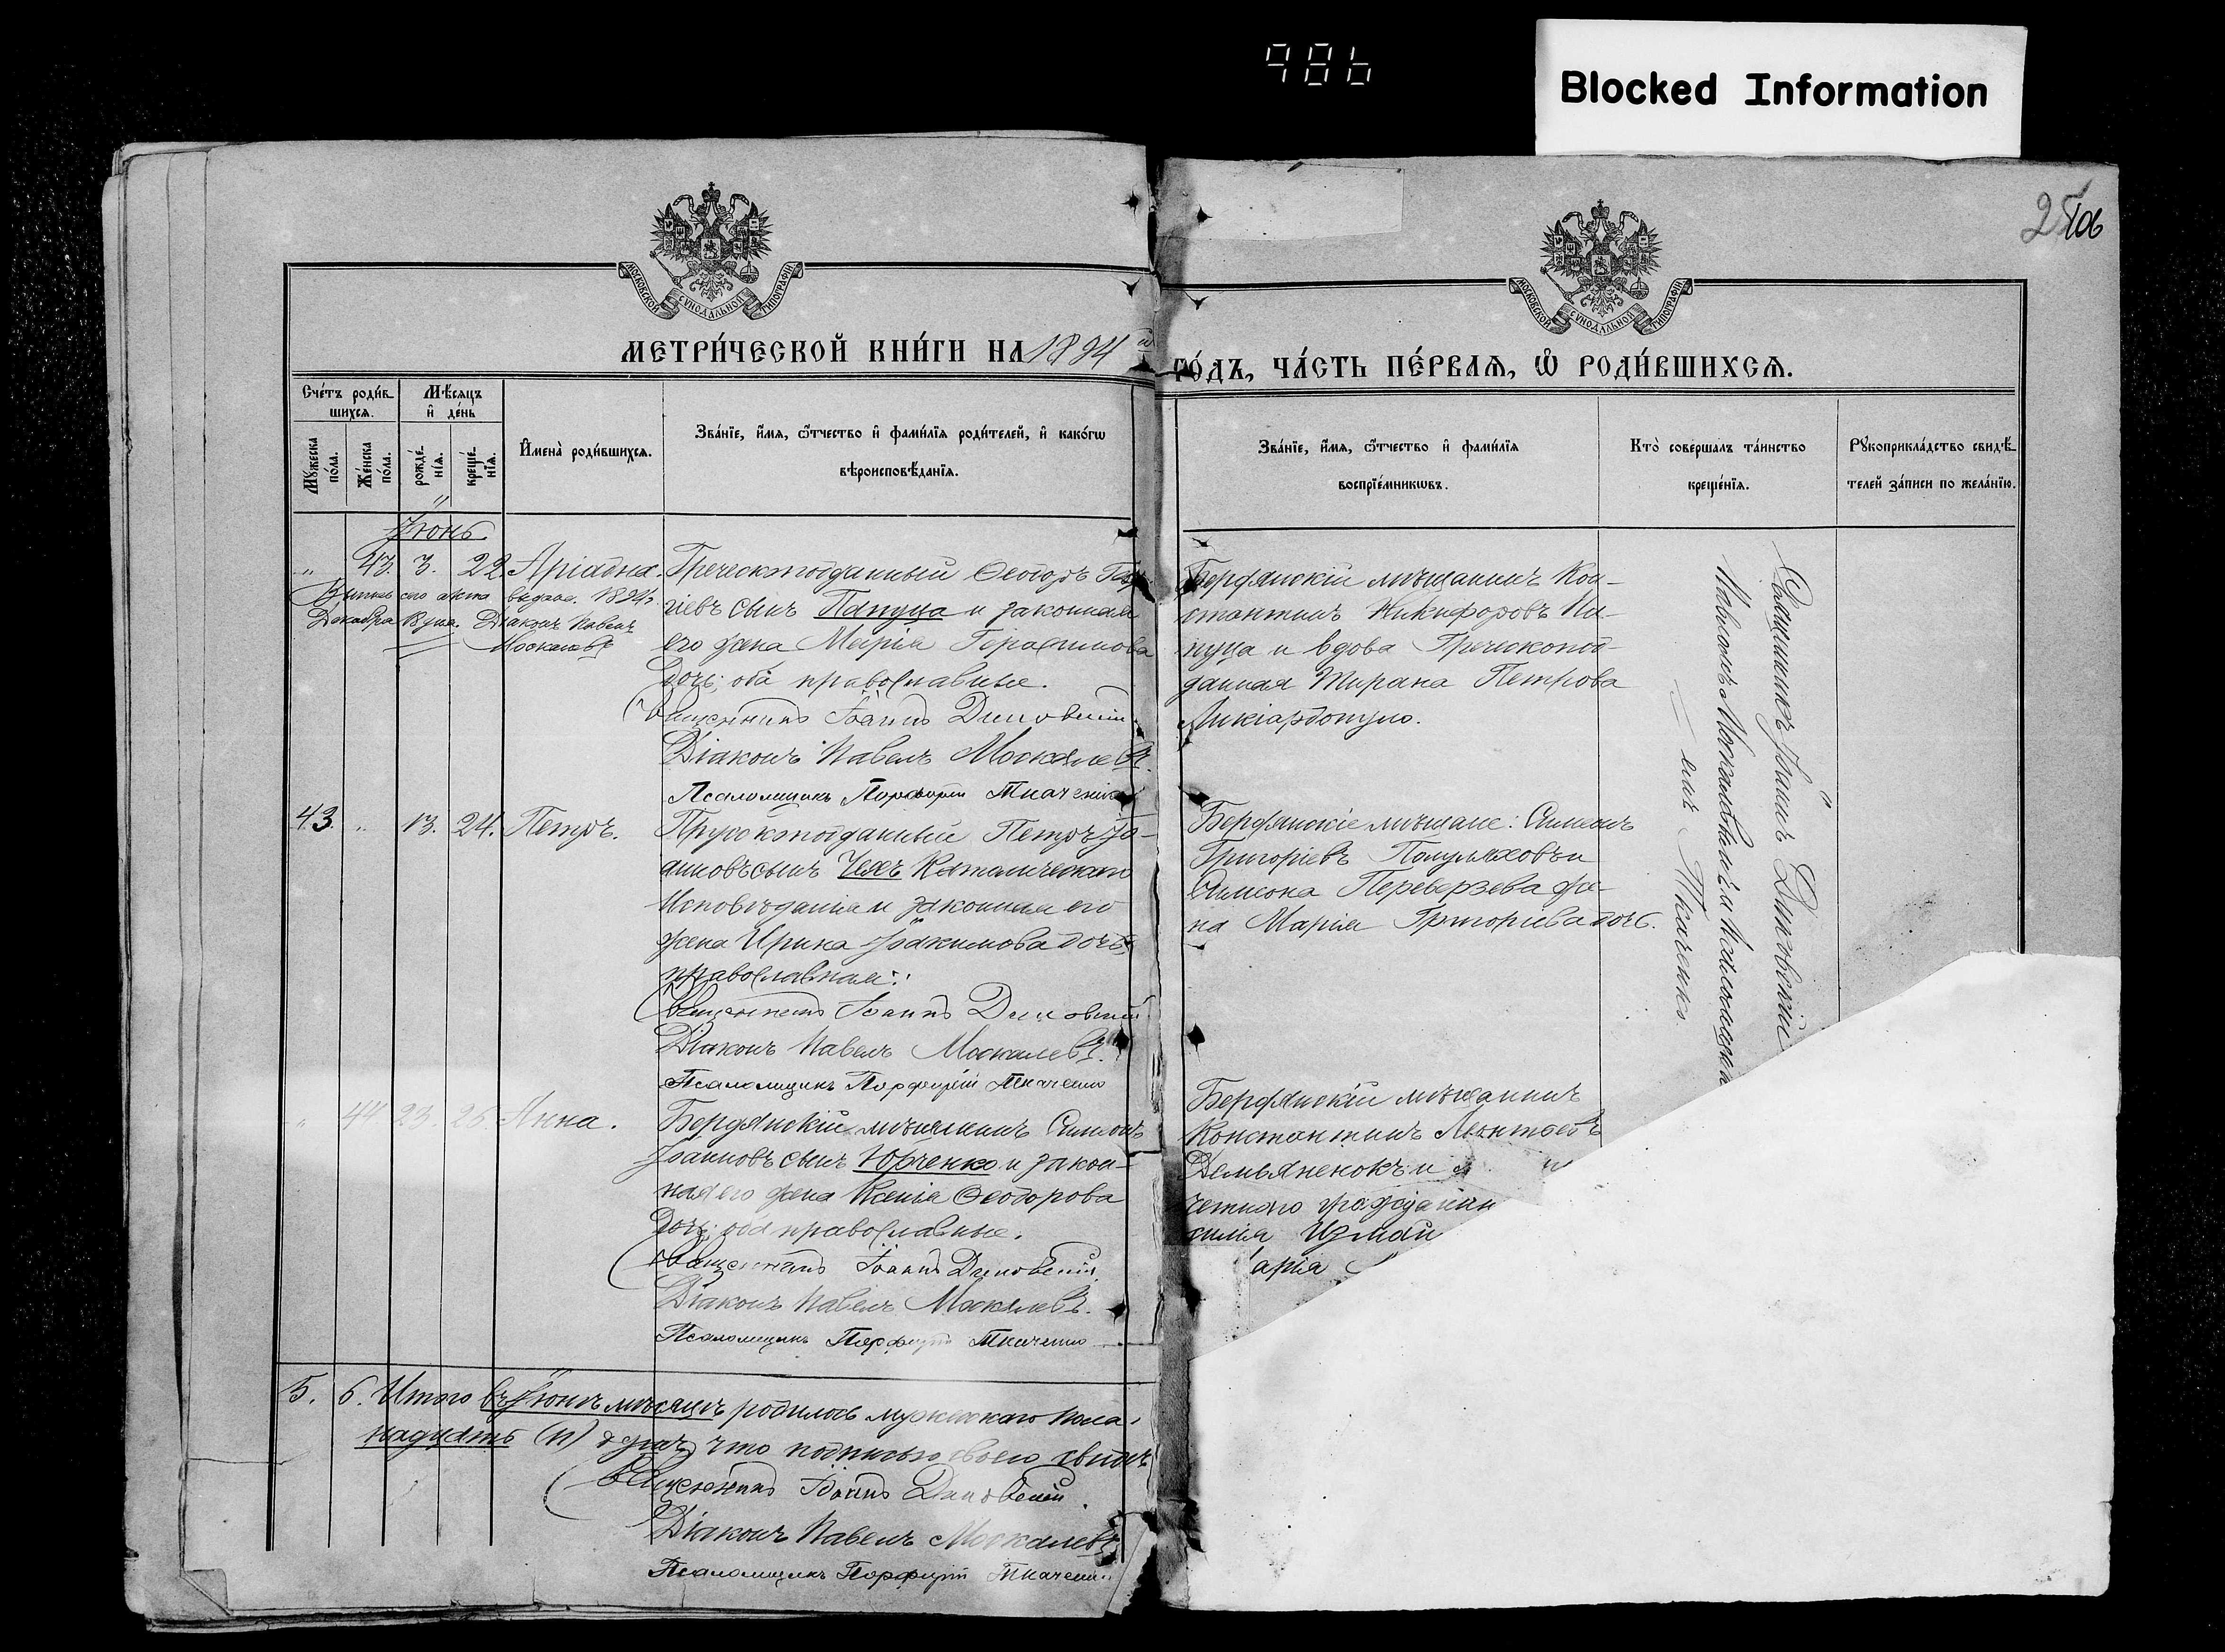 986
Blocked Information
25
106
МОСКОВСКОЙ СѴНОДАЛЬНОЙ ТИПОГРАФІИ
МОСКОВСКОЙ СѴНОДАЛЬНОЙ ТИПОГРАФІИ
МЕТРИ́ЧЕСКОЙ КНИ́ГИ НА 1894 й
ГО́ДЪ, ЧА́СТЬ ПЕ́РВАЯ, Ѽ РОДИ́ВШИХСЯ.
Сче́тъ роди́в
шихся.
Мѣ́сяцъ
и҆ де́нь
Мꙋ́жеска
по́ла.
Же́нска
по́ла.
рожде́
нїѧ.
креще́
нїѧ.
И҆мена̀ роди́вшихся.
Зва́нїе, и҆́мя, ѻ҆́тчество и҆ фами́лїя роди́телей, и҆ како́гѡ
вѣроисповѣ́данїя.
Зва́нїе, и҆́мя, ѻ҆́тчество и҆ фами́лїя
воспрїе́мникѡвъ.
Кто̀ соверша́лъ та́инство
креще́нїя.
Рꙋкоприкла́дство свидѣ́
телей за́писи по жела́нїю.
Іюнь
" 43. 3. 22. Аріадна.
Выпись сего акта выдана 1894 г.
Декабря 18 дня. Діаконъ Павелъ
Москалевъ
Греческоподданный Ѳеодоръ
гіевъ сынъ Папуца и законная
его жена Марія Герасимова
дочь; оба православные.
Священникъ Іоаннъ Диповскій
Діаконъ Павелъ Москалевъ.
Псаломщикъ Порфирій Ткаченко
Бердянскій мѣщанинъ Кон-
стантинъ Никифоровъ Па-
пуца и вдова Греческопод-
данная Мирана Петрова
Ликіардопуло.
Священникъ Іоаннъ Диповскій
Павломъ Москалевымъ и Псаломщик
Ткаченко.
43. " 13. 24. Петръ.
Прусскоподданный Петръ Іо-
анновъ сынъ Чехъ Католическаго
Исповѣданія и законная его
жена Ирина Іоакимова дочь
православная.
Священникъ Іоаннъ Диповскій
Діаконъ Павелъ Москалевъ.
Псаломщикъ Порфирій Ткаченко
Бердянскіе мѣщане: Симеонъ
Григоріевъ Полуляховъ и
Симеона Переверзева же-
на Марія Григоріева дочь.
" 44 23. 26. Анна.
Бердянскій мѣщанинъ Симеонъ
Іоанновъ сынъ Юрченко и закон-
ная его жена Ксенія Ѳеодорова
дочь; оба православные.
Священникъ Іоаннъ Диповскій
Діаконъ Павелъ Москалевъ.
Псаломщикъ Порфирій Ткаченко
Бердянскій мѣщанинъ
Константинъ Леонтіевъ
Демьяненокъ и
четнаго гражданин
силія Измай
арія
5. 6. Итого въ Іюнѣ мѣсяцѣ родилось мужескаго пола
надцать (11) душъ, что подписью своею свидѣ
Священникъ Іоаннъ Диповскій
Діаконъ Павелъ Москалевъ
Псаломщикъ Порфирій Ткаченко